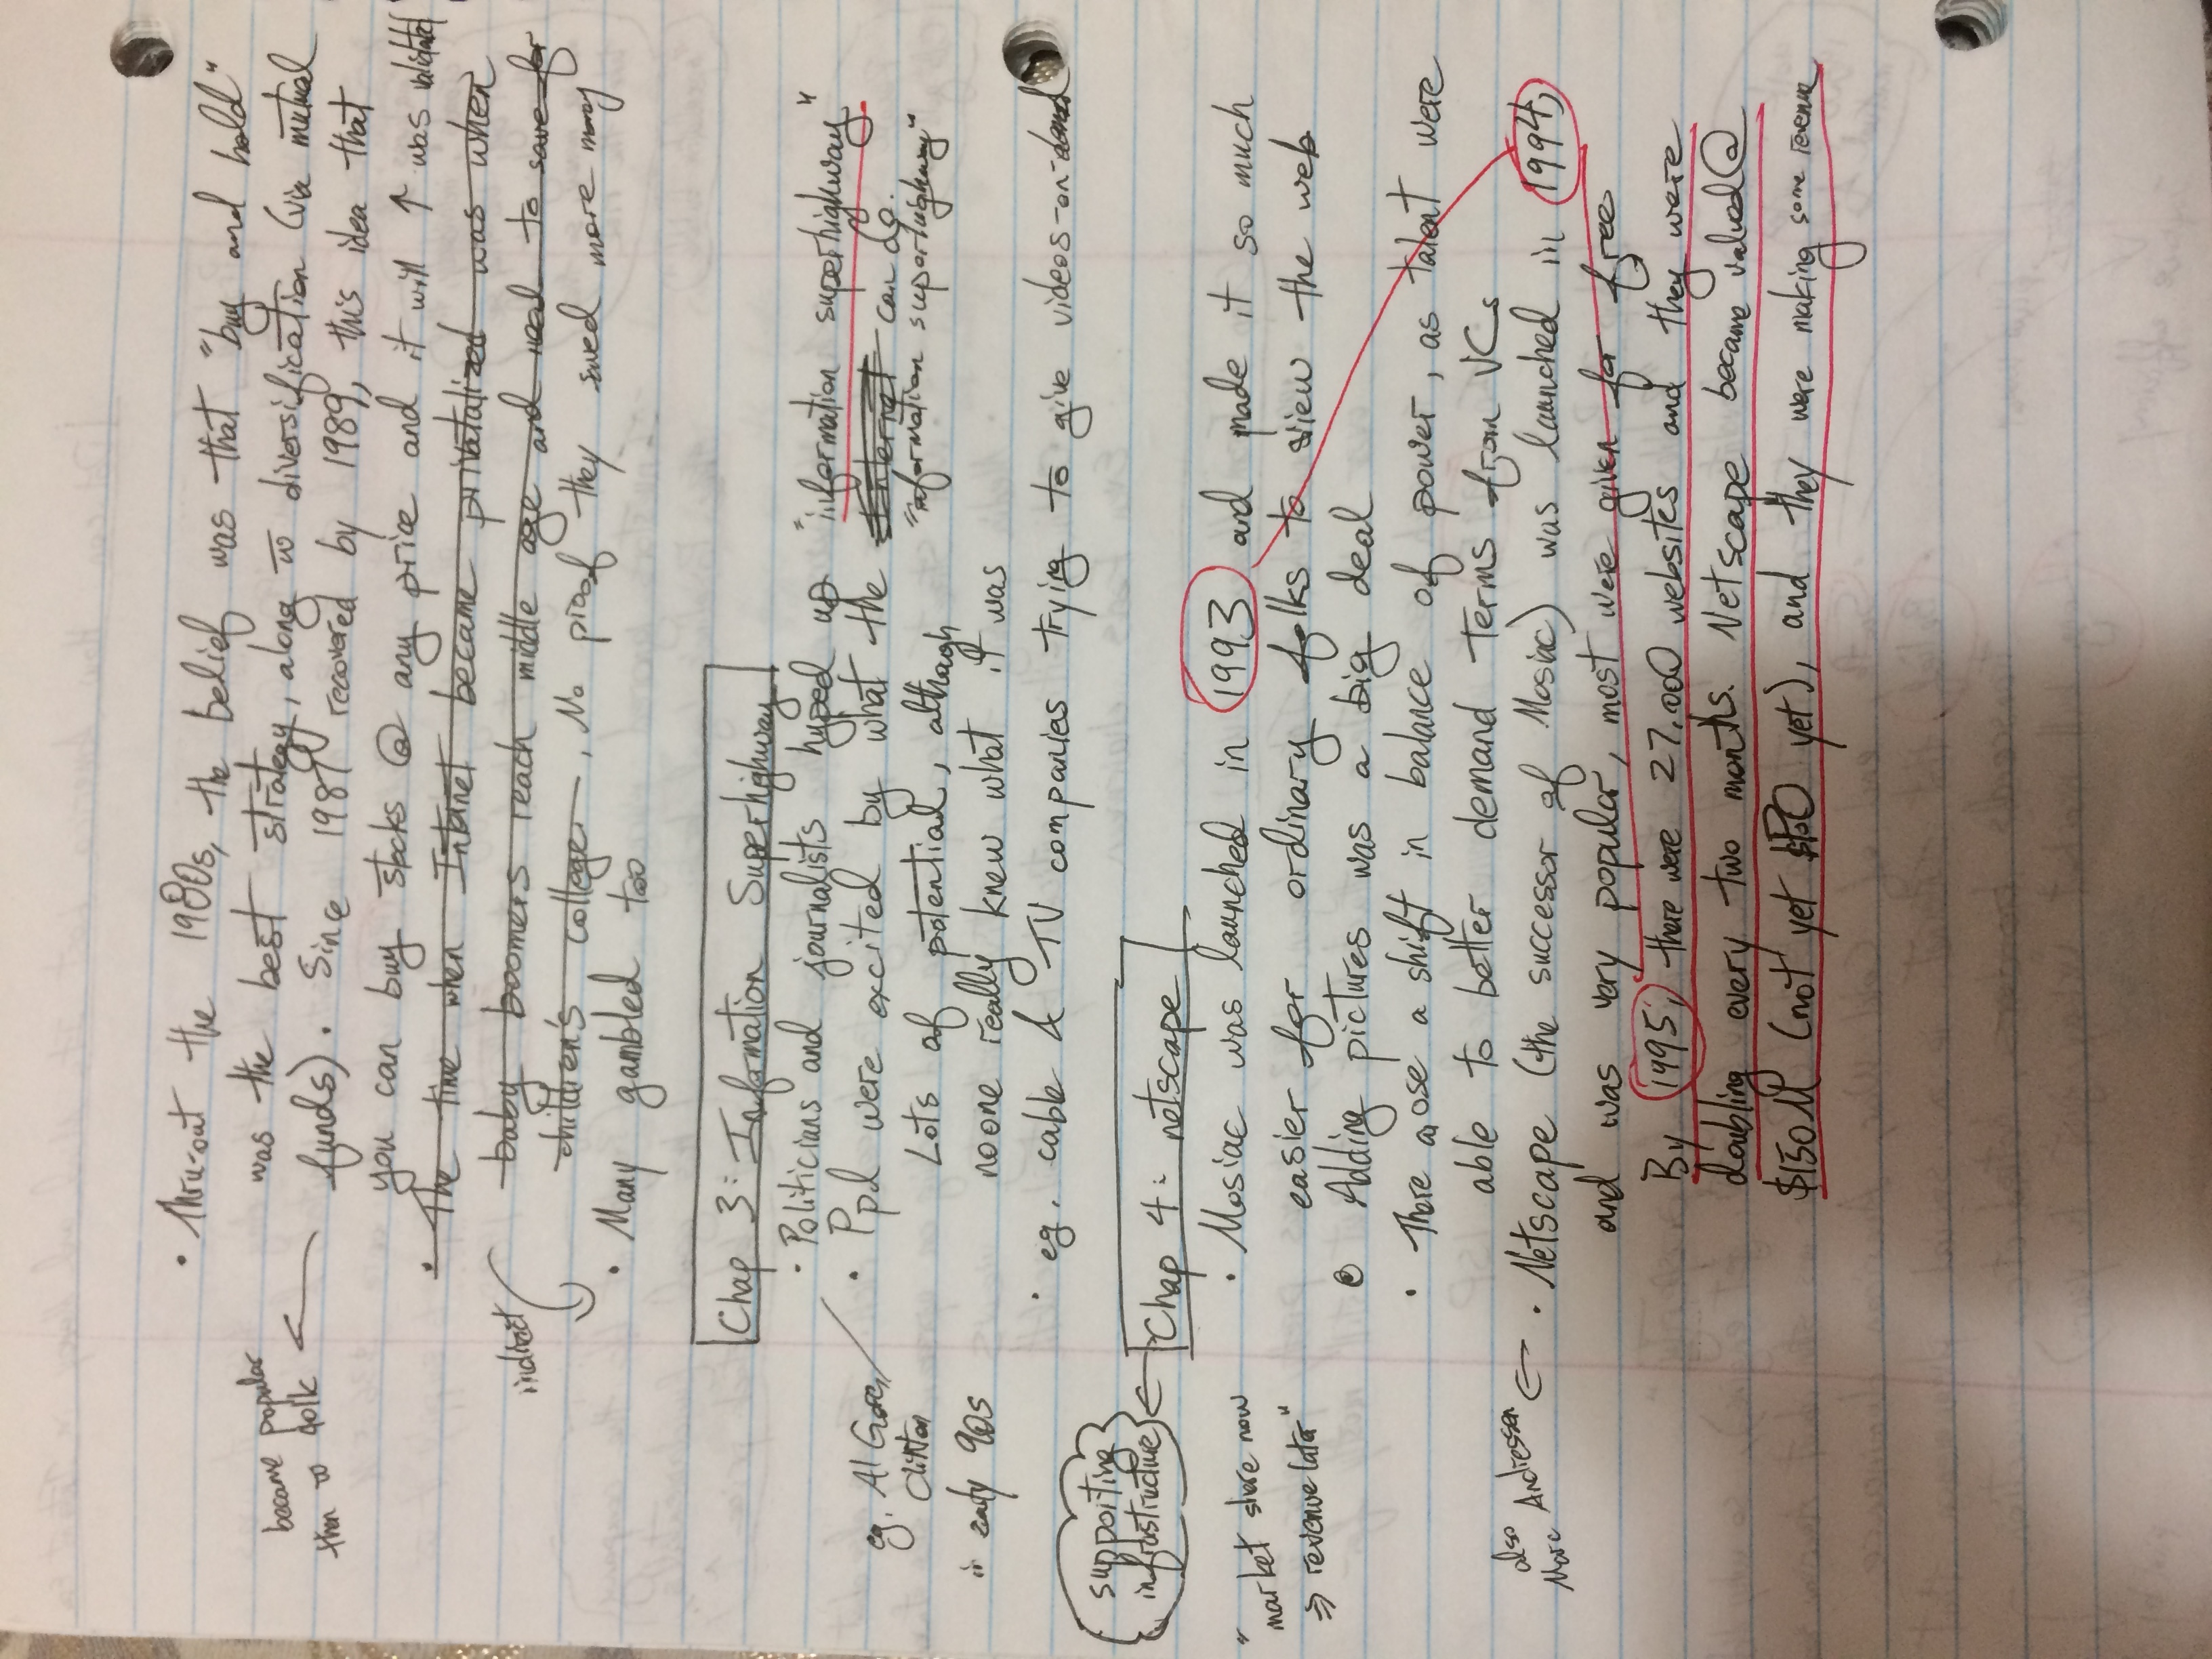 • Thru-out the 1980s, the belief was that "buy and hold"
was the best strategy, along w diversification (via mutual
funds). Since 1987 recovered by 1989, this idea that
you can buy stocks @ any price and it will ↑ was validated
became popular
then w folk
• The time when Internet became privatalized was when
baby boomers reach middle age and need to save for
children's college. , No proof they saved more money
indirect
• Many gambled too
Chap 3: Information Superhighway
• Politicians and journalists hyped up "information superhighway"
• Ppl were excited by what the Internet can do.
"information superhighway"
Lots of potential, although
no one really knew what it was
eg. Al Gore,
Clinton
in early 90s
• eg. cable & TV companies trying to give videos-on-demand
supporting
infrastructure
Chap 4: netscape
• Mosiac was launched in 1993 and made it so much
easier for ordinary folks to view the web
"market share now
⇒ revenue later"
• Adding pictures was a big deal
• There arose a shift in balance of power, as talent were
able to better demand terms from VCs
also
Marc Andressen
• Netscape (the successor of Mosiac) was launched in 1994,
and was very popular, most were given for free
By 1995, there were 27,000 websites and they were
doubling every two months. Netscape became valued @
$150M (not yet IPO yet), and they were making some revenue